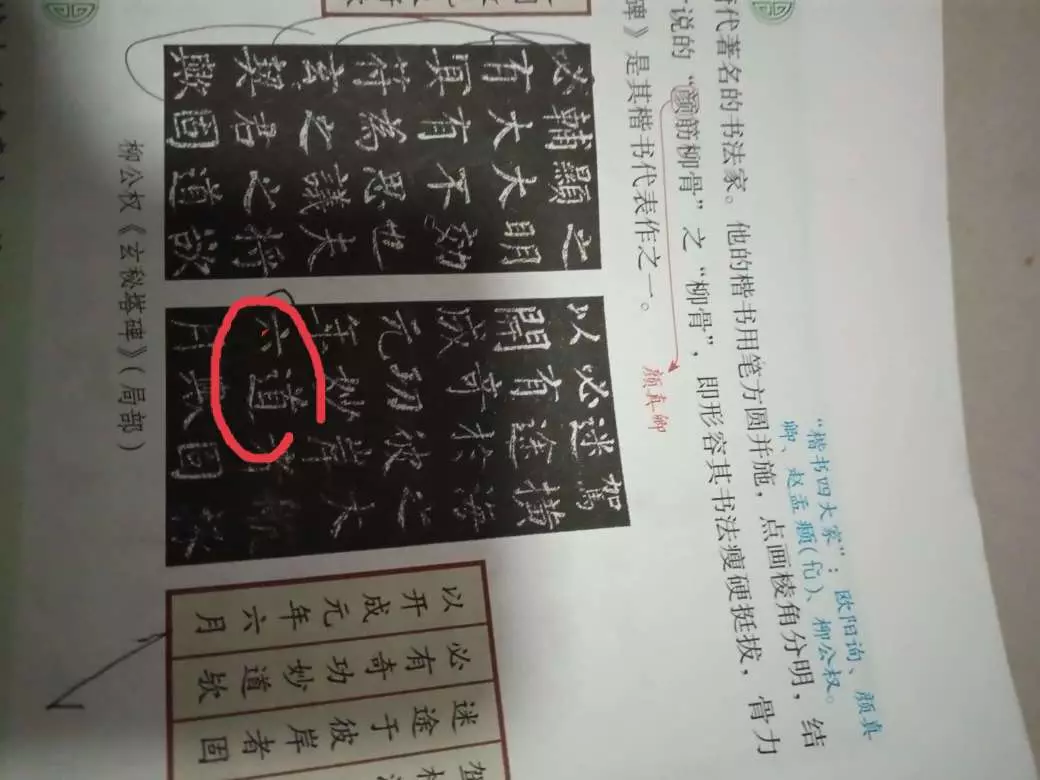 “楷书四大家”：欧阳询、颜真
卿、赵孟頫(元)、柳公权。
代著名的书法家。他的楷书用笔方圆并施，点画棱角分明，结
说的“颜筋柳骨”之“柳骨”，即形容其书法瘦硬挺拔，骨力
颜真卿
碑》是其楷书代表作之一。
之明效也夫將欲
顯大不思議之道
輔大有為之君固
必有冥符玄契歟
駕橫海之大航
迷途於彼岸者固
必有奇功妙道歟
以開成元年六月
驾
迷途于彼岸者固
必有奇功妙道欤
以开成元年六月
柳公权《玄秘塔碑》(局部)